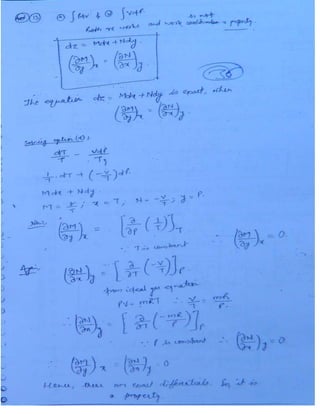 (a) ∫Pdv & (b) ∫Vdp is not
Both are works and work is a property.
dz = Mdx + Ndy
(∂M/∂y)x = (∂N/∂x)y
The equation dz = Mdx + Ndy is exact, when
(∂M/∂y)x = (∂N/∂x)y
option (d):
dT/T - vdP/T
1/T · dT + (-v/T) dP
Mdx + Ndy
M = 1/T ; x = T, N = -v/T ; y = P.
Now: (∂M/∂y)x = [∂/∂P (1/T)]T
∵ T is constant ∴ (∂M/∂y)x = 0.
Again: (∂N/∂x)y = [∂/∂T (-v/T)]P
from ideal gas equation
PV = mRT ∴ V/T = mR/P.
∴ (∂N/∂x)y = [∂/∂T (-mR/P)]P
∵ P is constant ∴ (∂N/∂x)y = 0
∴ (∂M/∂y)x = (∂N/∂x)y = 0
Hence, these are exact differentials. So, it is
a property.